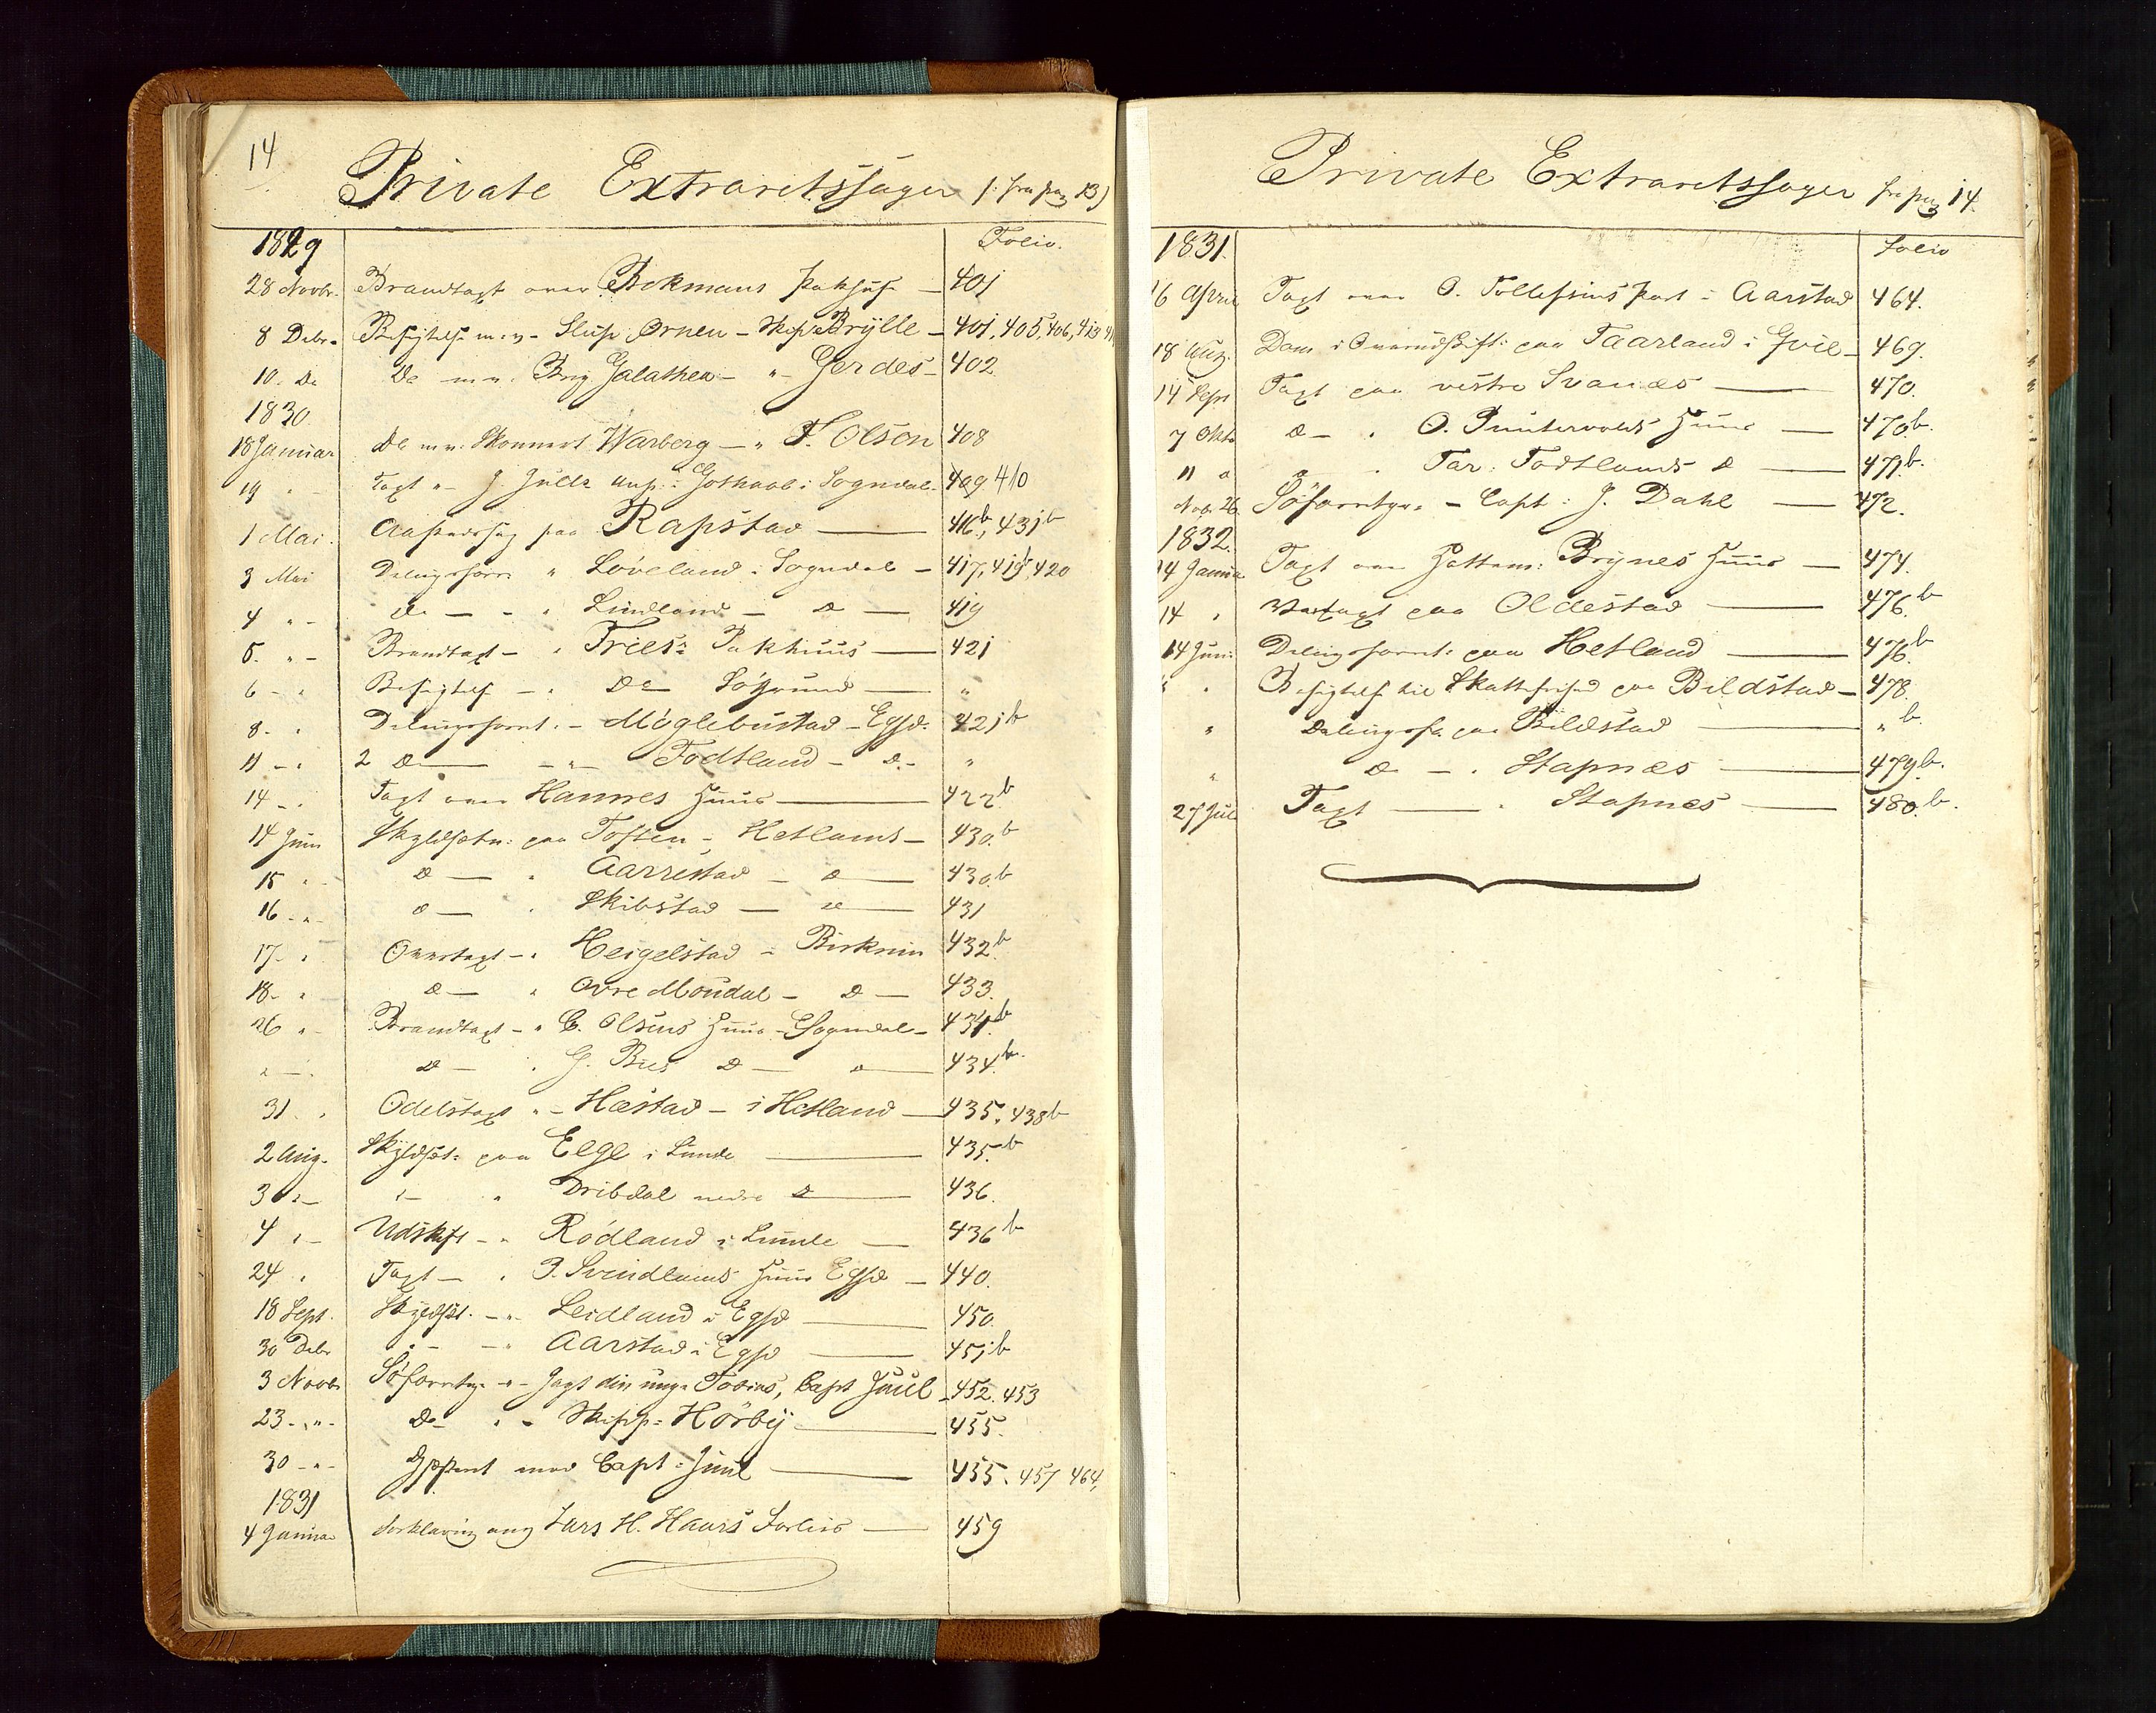 14
Private Extraretssager (: fra pag 13)
1829 Folio.
28 Novbr. Brandtaxt over Bekmans Pakhuse — 401
8 Debr. Besigtelse m: v. Slup Ørnen — Skip: Brylle — 401, 405, 406, 413
10. Do Do m: v. Brig Galathea — " — Gerdes — 402
1830.
18 Januar Do m v: Skonnert Warberg — " F. Olson 408
19 " Taxt " J. Juells Gothaab i Sogndal. 409 410
1 Mai. Aastedssag paa Rapstad — 416b, 431b
3 Mai Delingsforr " Løveland i Sogndal — 417, 419, 420
4 " — do — " Lindland — do — 419
5. " — Brandtaxt — " Friis: Pakhuus — 421
6 - " Besigtelse — " Do Søgrund — "
8. " Delingsforret. — Møglebustad — Egsd. 421b
11 - " 2 do — " — Fodtland — do — "
14 - " Taxt over Hannes Huus — 422b
14 Juni Skyldsætn: paa Toften — Hetlands — 430.b
15 " do — " Aarrestad — do — 430.b
16 - " - do — " Skibstad — do — 431
17 - " Overtaxt — " Heigelstad — Birkrim 432.b
18 - " do — " Øvre Moudal — do — 433.
26 " — Brandtaxt — " C. Olsens Huus — Sogndal — 434.b
" — " do — " G. Bues do — do — 434.b
31 " Odelstaxt " — Hæstad — i Hetland — 435, 438b
2 Aug. Skyldsæt: paa Elge i Lunde — 435.b
3 " — " — " Dribdal nedre do — 436.
4 " — Udskift — " Rødland i Lunde — 436b
24 " Taxt — " P. Svindlands Huus Egsd — 440.
18 Sept. Skyldsæt. — " Leidland i Egsd — 450.
30 Debr " — " Aarstad i Egsd — 451b
3 Novbr Søforretn " — Jagt den unge Tobias, Capt Juul — 452. 453
23 - " - Do " — Skipp: Hörby — 455.
30 - " - mod Capt: Juul — 455. 457 464,
1831
4 Januar Forklaring ang Lars H. Haars Forliis — 459
Private Extraretssager fra pag 14.
1831. Folio
16 April Taxt over O. Tollefsens Part i Aarstad 464.
18 Aug. Dom i Overudskift: paa Taarland i Qvie — 469.
14 Sept Taxt paa vestre Svanæs — 470.
7 Oktb do — " O. Puntervolds Huus — 470.b.
11 do do " Tar: Fodtlands do — 471.b.
Nov. 26 Søforretn. — Capt: J. Dahl — 472.
1832.
14 Januar Taxt over Hattem: Brynes Huus — 474.
14 " paa Oldestad — 476.b
14 Juni Delingsforret: paa Hetland — 476.b
" Besigtelse til Skattefrihed paa Bildstad — 478.
" Delingsf. paa Bildstad — " b.
" do — " Stapnæs — 479b.
27 Juli Taxt — " Stapnes — 480.b.